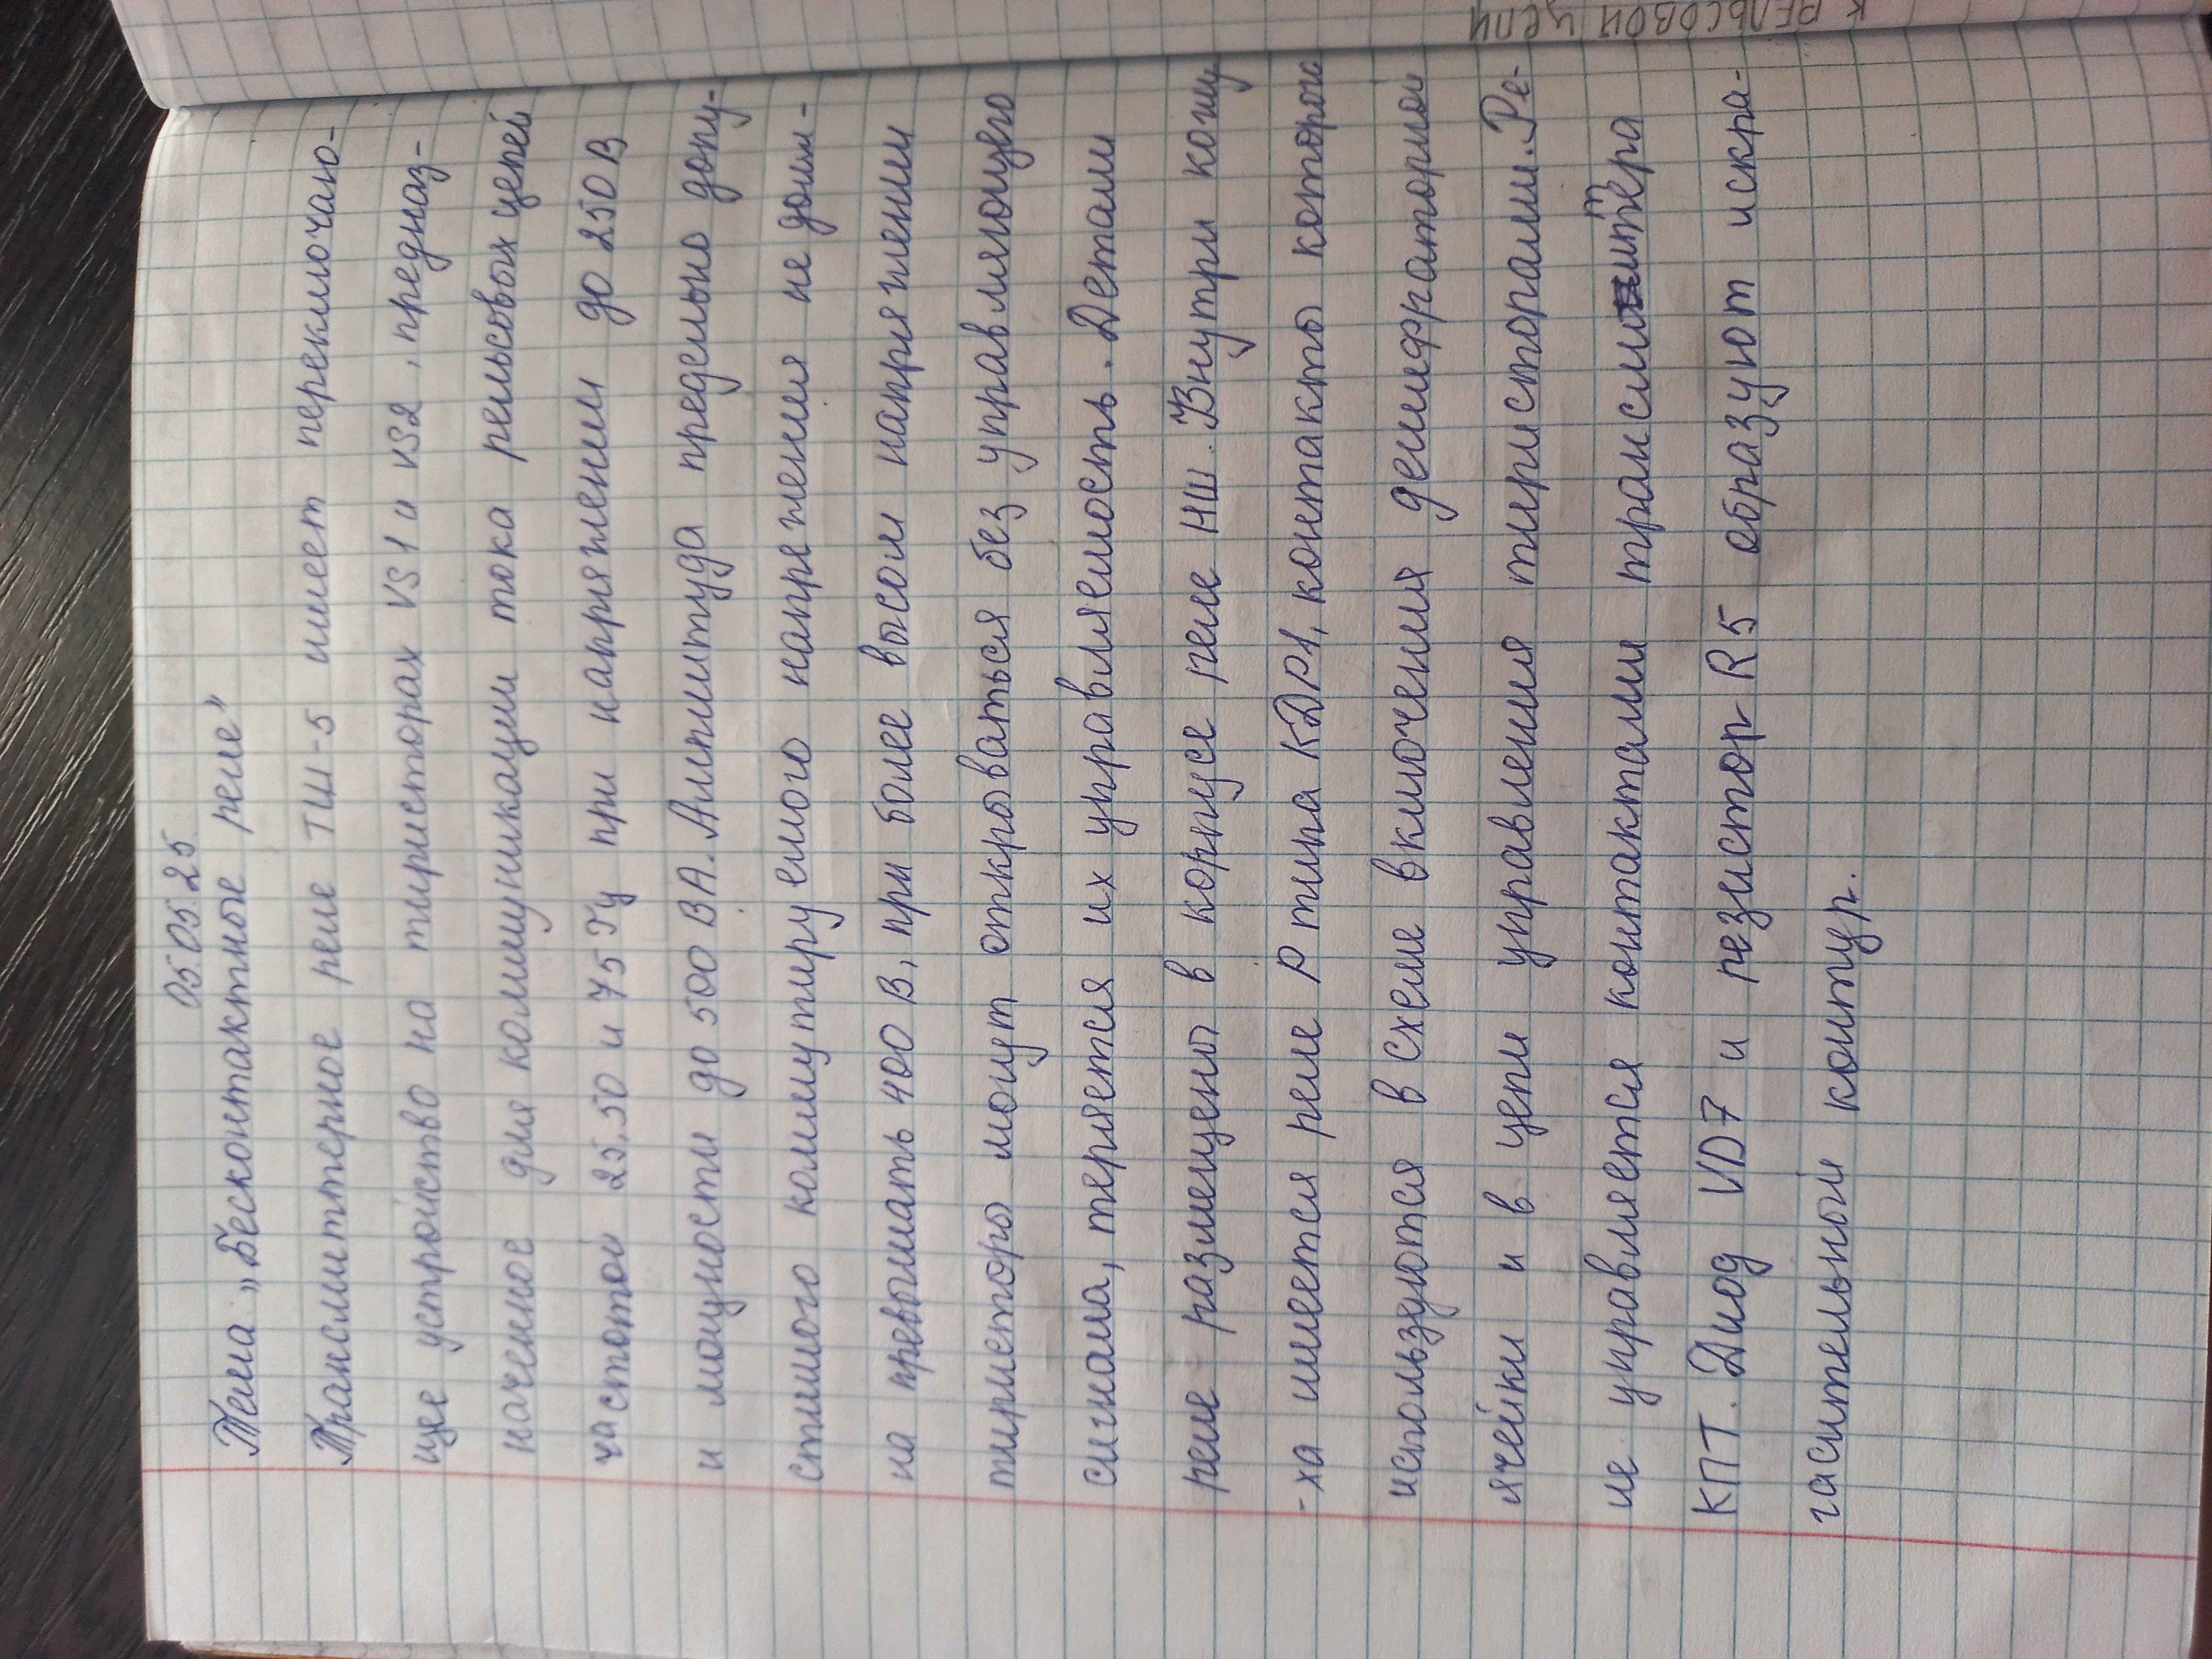 05.05.25
Тема: „Бесконтактные реле"
Трансмиттерное реле ТШ-5 имеет переключаю-
щее устройство на тиристорах VS1 и VS2, предназ-
наченное для коммуникации тока рельсовых цепей
частотой 25,50 и 75 Гц при напряжении до 250 В
и мощности до 500 ВА. Амплитуда предельно допу-
стимого коммутируемого напрежения не дол-
на превышать 400 В, при более высом напряжении
тиристоры могут открываться без управляющего
сигнала, теряется их управляемость. Детали
реле размещены в корпусе реле НШ. Внутри кожу
-ха имеется реле Р типа КДР1, контакты которого
используются в схеме включения дешифраторной
ячейки и в цепи управления тиристорами. Ре-
ле управляется контактами трансмиттера
КПТ. Диод VD7 и резистор R5 образуют искра-
гасительной контур.
к рельсовой цепи